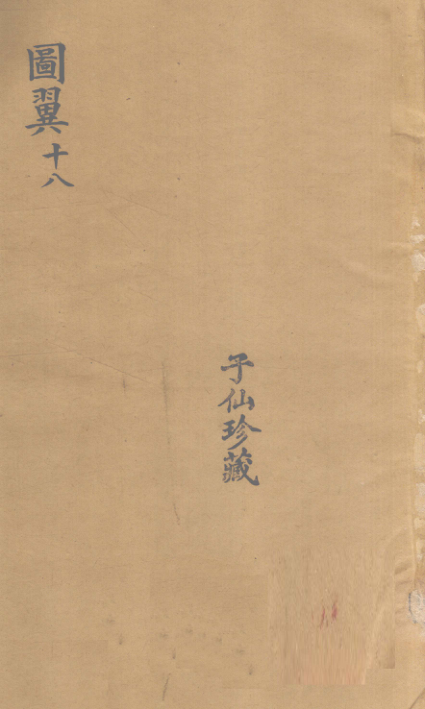 圖翼十八
子仙珍藏